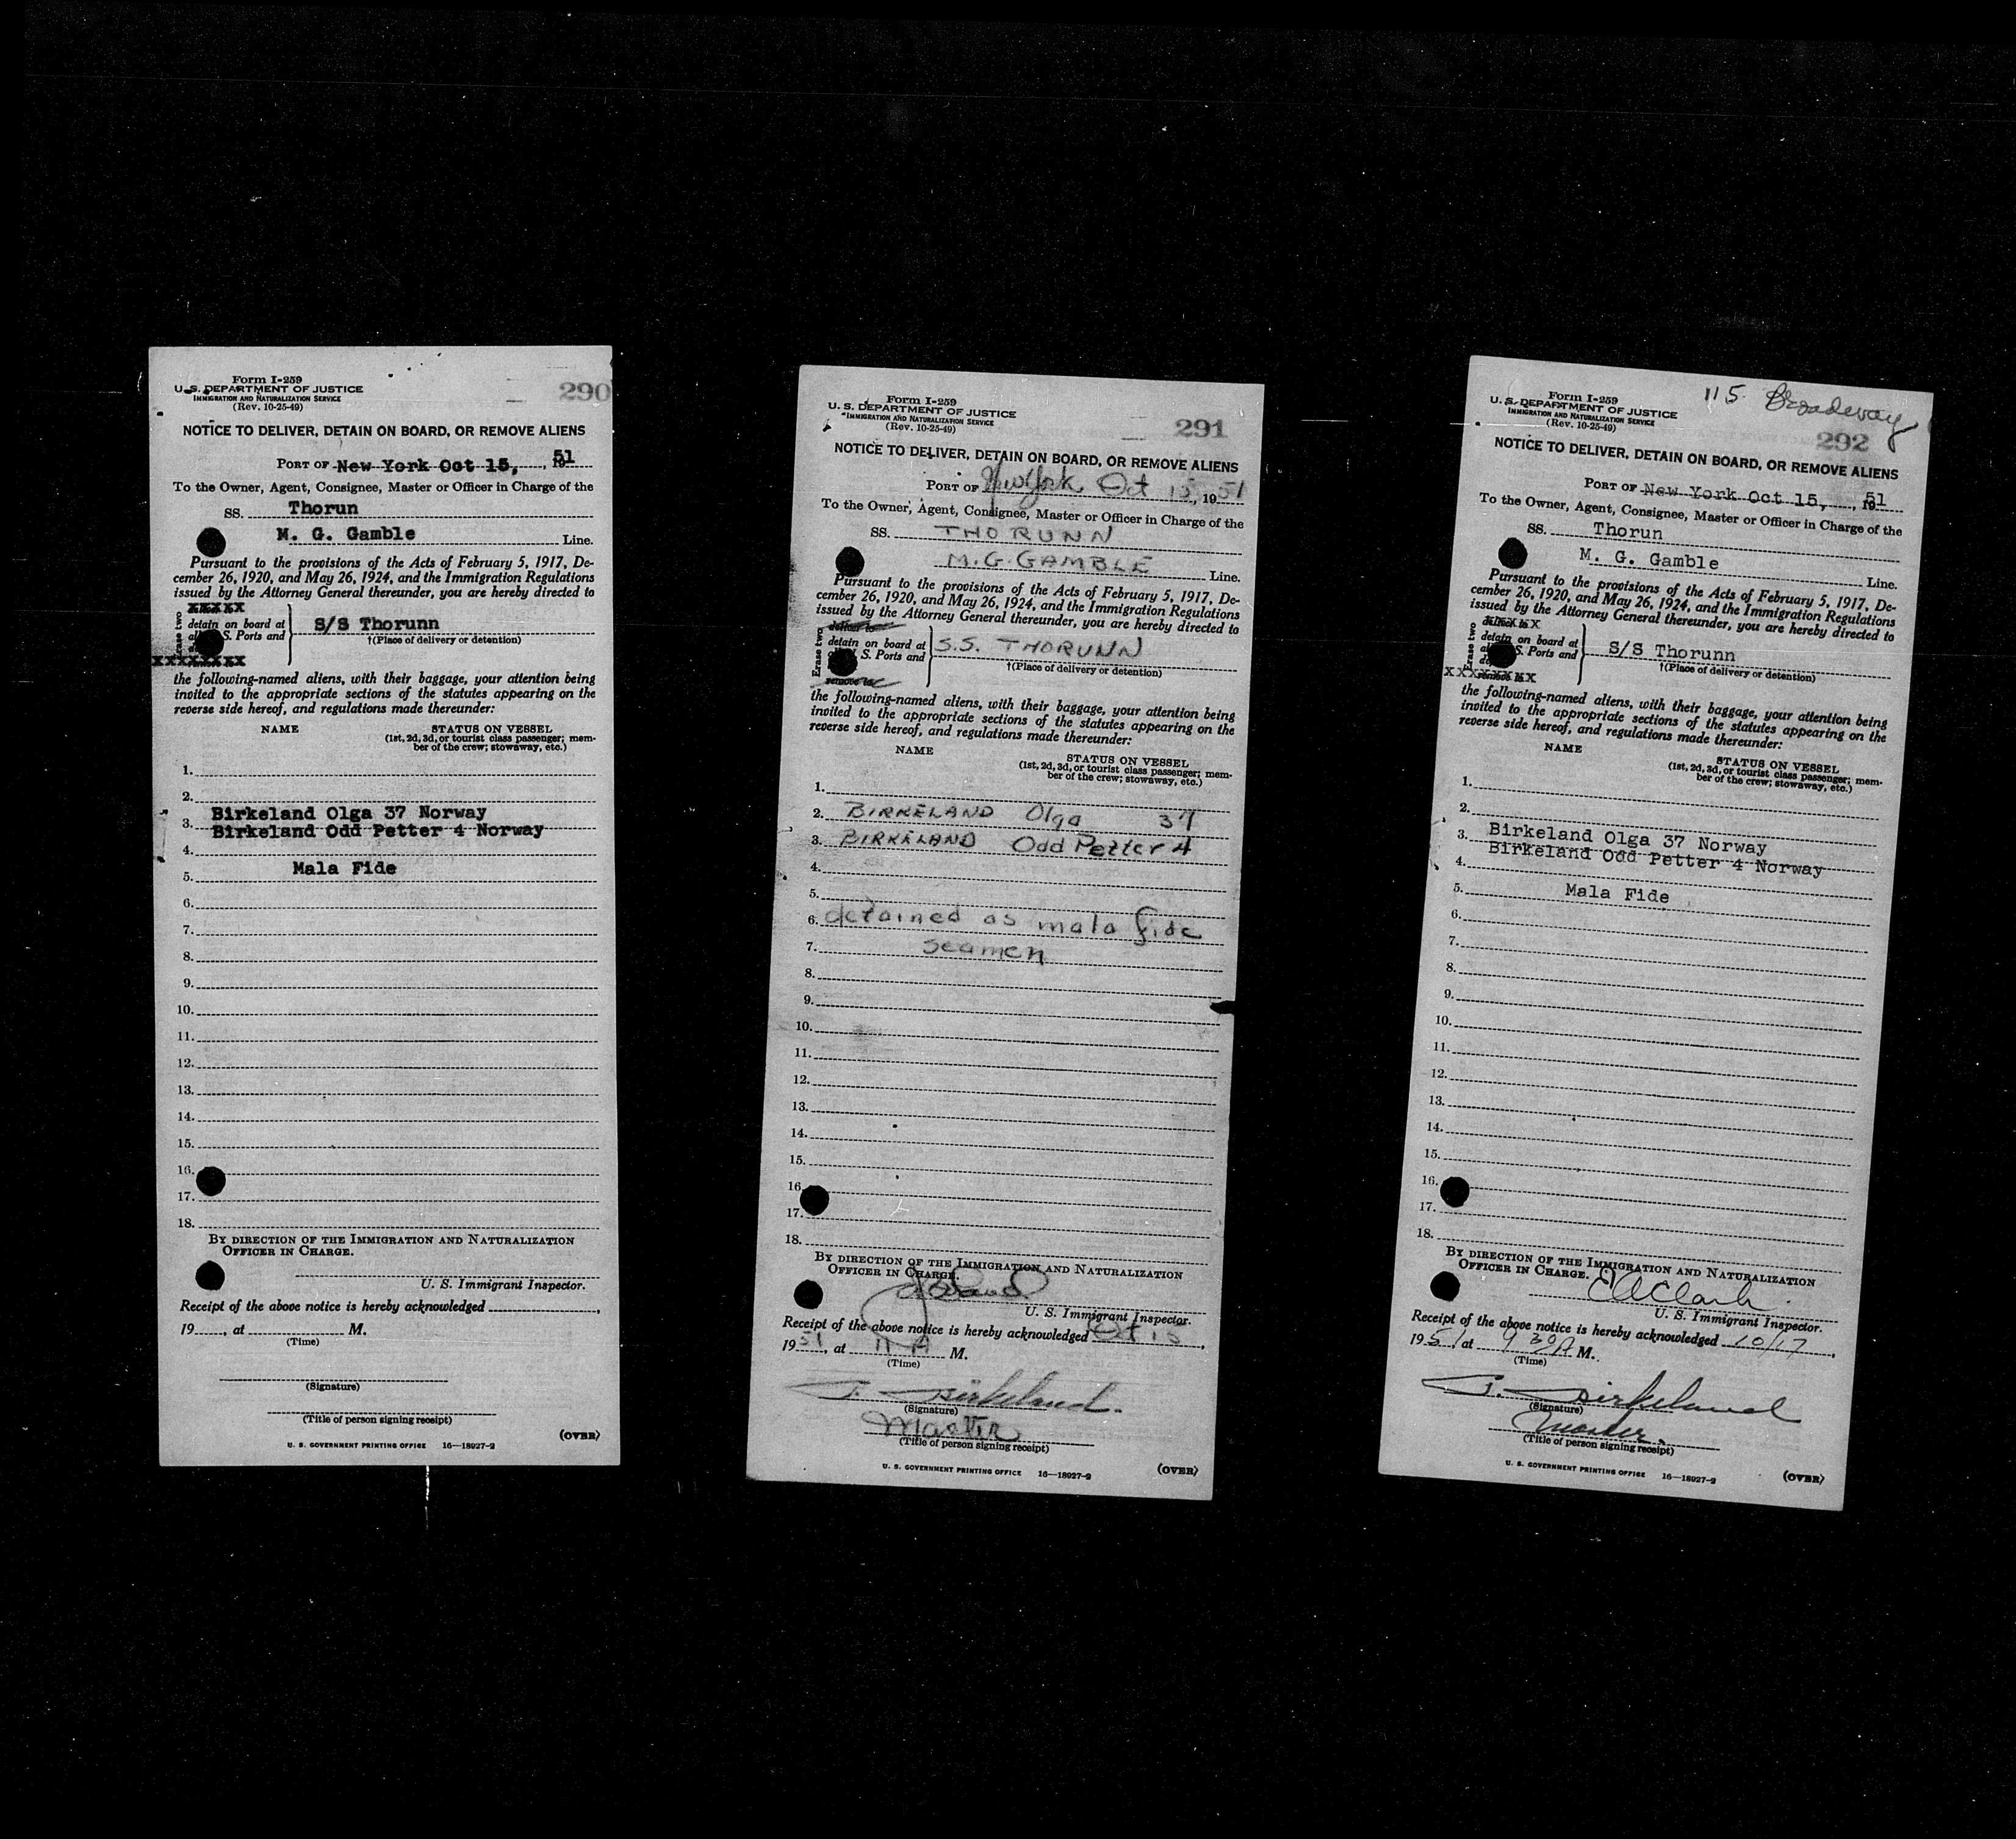 Form I-259
U. S. DEPARTMENT OF JUSTICE
IMMIGRATION AND NATURALIZATION SERVICE
(Rev. 10-25-49)
290
NOTICE TO DELIVER, DETAIN ON BOARD, OR REMOVE ALIENS
PORT OF New York Oct 15, , 1951
To the Owner, Agent, Consignee, Master or Officer in Charge of the
SS. Thorun
M. G. Gamble Line.
Pursuant to the provisions of the Acts of February 5, 1917, De-
cember 26, 1920, and May 26, 1924, and the Immigration Regulations
issued by the Attorney General thereunder, you are hereby directed to
XXXXX
Erase two
detain on board at
S. Ports and
S/S Thorunn
†(Place of delivery or detention)
XXXXXXXX
the following-named aliens, with their baggage, your attention being
invited to the appropriate sections of the statutes appearing on the
reverse side hereof, and regulations made thereunder:
NAME STATUS ON VESSEL
(1st, 2d, 3d, or tourist class passenger; mem-
ber of the crew; stowaway, etc.)
1.
2.
Birkeland Olga 37 Norway
3. Birkeland Odd Petter 4 Norway
4.
5. Mala Fide
6.
7.
8.
9.
10.
11.
12.
13.
14.
15.
16.
17.
18.
BY DIRECTION OF THE IMMIGRATION AND NATURALIZATION
OFFICER IN CHARGE.
U. S. Immigrant Inspector.
Receipt of the above notice is hereby acknowledged ,
19 , at M.
(Time)
(Signature)
(Title of person signing receipt)
(OVER)
U. S. GOVERNMENT PRINTING OFFICE 16—18927-2
Form I-259
U. S. DEPARTMENT OF JUSTICE
IMMIGRATION AND NATURALIZATION SERVICE
(Rev. 10-25-49)
291
NOTICE TO DELIVER, DETAIN ON BOARD, OR REMOVE ALIENS
PORT OF New York Oct 15, 1951
To the Owner, Agent, Consignee, Master or Officer in Charge of the
SS. THORUNN
M.G. GAMBLE Line.
Pursuant to the provisions of the Acts of February 5, 1917, De-
cember 26, 1920, and May 26, 1924, and the Immigration Regulations
issued by the Attorney General thereunder, you are hereby directed to
deliver to
Erase two
detain on board at
S. Ports and
S.S. THORUNN
†(Place of delivery or detention)
remove to
the following-named aliens, with their baggage, your attention being
invited to the appropriate sections of the statutes appearing on the
reverse side hereof, and regulations made thereunder:
NAME STATUS ON VESSEL
(1st, 2d, 3d, or tourist class passenger; mem-
ber of the crew; stowaway, etc.)
1.
2. BIRKELAND Olga 37
3. BIRKELAND Odd Petter 4
4.
5.
6. detained as mala fide
7. seamen
8.
9.
10.
11.
12.
13.
14.
15.
16.
17.
18.
BY DIRECTION OF THE IMMIGRATION AND NATURALIZATION
OFFICER IN CHARGE.
U. S. Immigrant Inspector.
Receipt of the above notice is hereby acknowledged Oct 15,
1951, at 11 A M.
(Time)
T. Birkeland.
(Signature)
Master
(Title of person signing receipt)
(OVER)
U. S. GOVERNMENT PRINTING OFFICE 16—18927-2
115 Broadway
Form I-259
U. S. DEPARTMENT OF JUSTICE
IMMIGRATION AND NATURALIZATION SERVICE
(Rev. 10-25-49)
292
NOTICE TO DELIVER, DETAIN ON BOARD, OR REMOVE ALIENS
PORT OF New York Oct 15, , 1951
To the Owner, Agent, Consignee, Master or Officer in Charge of the
SS. Thorun
M. G. Gamble Line.
Pursuant to the provisions of the Acts of February 5, 1917, De-
cember 26, 1920, and May 26, 1924, and the Immigration Regulations
issued by the Attorney General thereunder, you are hereby directed to
Erase two
detain on board at
S. Ports and
S/S Thorunn
†(Place of delivery or detention)
remove to
the following-named aliens, with their baggage, your attention being
invited to the appropriate sections of the statutes appearing on the
reverse side hereof, and regulations made thereunder:
NAME STATUS ON VESSEL
(1st, 2d, 3d, or tourist class passenger; mem-
ber of the crew; stowaway, etc.)
1.
2.
3. Birkeland Olga 37 Norway
Birkeland Odd Petter 4 Norway
4.
5. Mala Fide
6.
7.
8.
9.
10.
11.
12.
13.
14.
15.
16.
17.
18.
BY DIRECTION OF THE IMMIGRATION AND NATURALIZATION
OFFICER IN CHARGE. E A Clark
U. S. Immigrant Inspector.
Receipt of the above notice is hereby acknowledged 10/17,
1951 at 9 30 A M.
(Time)
T. Birkeland
(Signature)
Master.
(Title of person signing receipt)
(OVER)
U. S. GOVERNMENT PRINTING OFFICE 16—18927-2